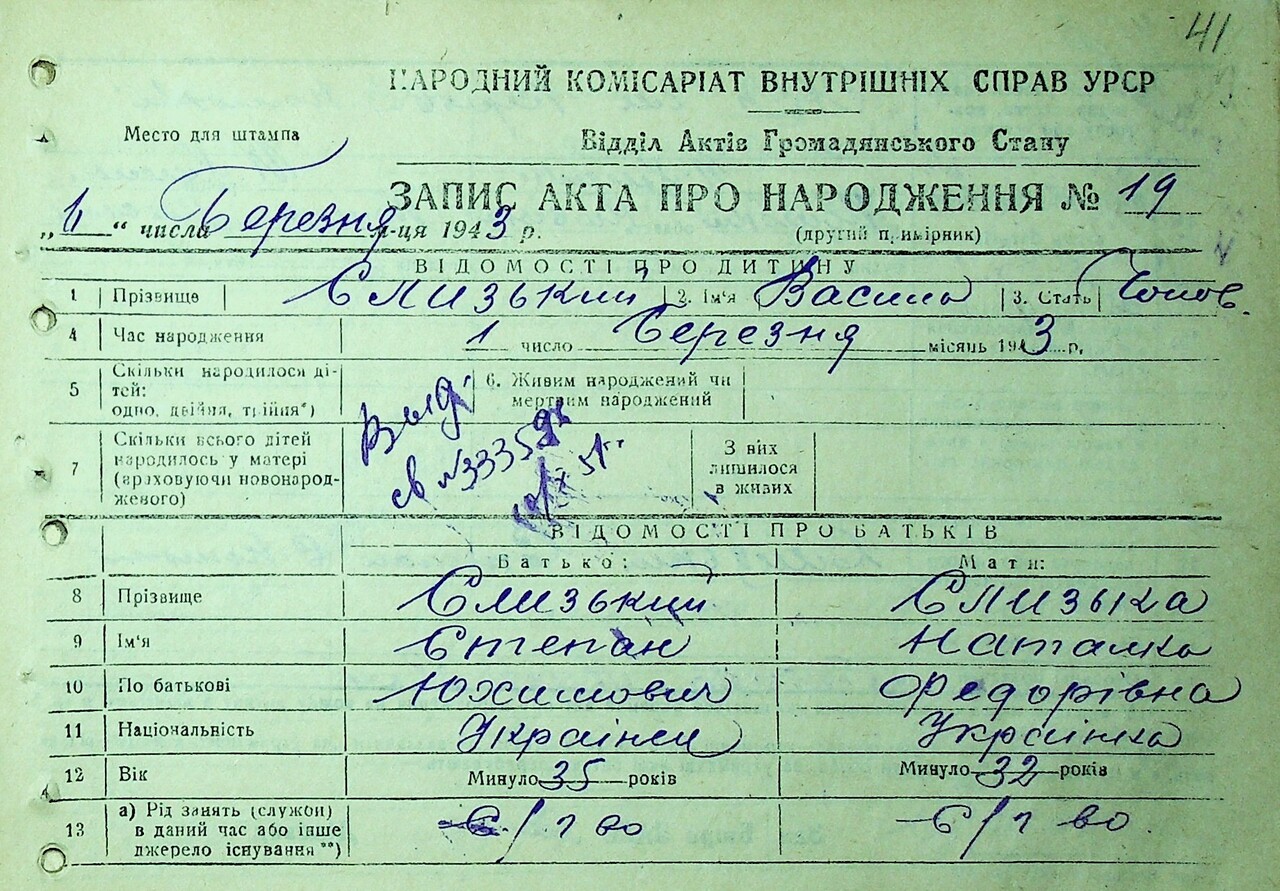 41
НАРОДНИЙ КОМІСАРІАТ ВНУТРІШНІХ СПРАВ УРСР
Место для штампа
Відділ Актів Громадянського Стану
ЗАПИС АКТА ПРО НАРОДЖЕННЯ № 19
" " числа Березня м-ця 1943 р.
(другий примірник)
ВІДОМОСТІ ПРО ДИТИНУ
1 Прізвище Слизький 2. Ім'я Василь 3. Стать Чолов.
4 Час народження 1 число Березня місяць 1943 р.
5 Скільки народилося ді-
тей:
одно, двійня, трійня*)
6. Живим народжений чи
мертвим народжений
7 Скільки всього дітей
народилось у матері
(враховуючи новонарод-
жевого)
З них
лишилося
в живих
Выд.
св №
ВІДОМОСТІ ПРО БАТЬКІВ
Батько: Мати:
8 Прізвище Слизький Слизька
9 Ім'я Степан Наталка
10 По батькові Юхимович Федорівна
11 Національність Українец Українка
12 Вік Минуло 35 років Минуло 32 років
13 а) Рід занять (служби)
в даний час або інше
джерело існування **)
С/г во С/г во